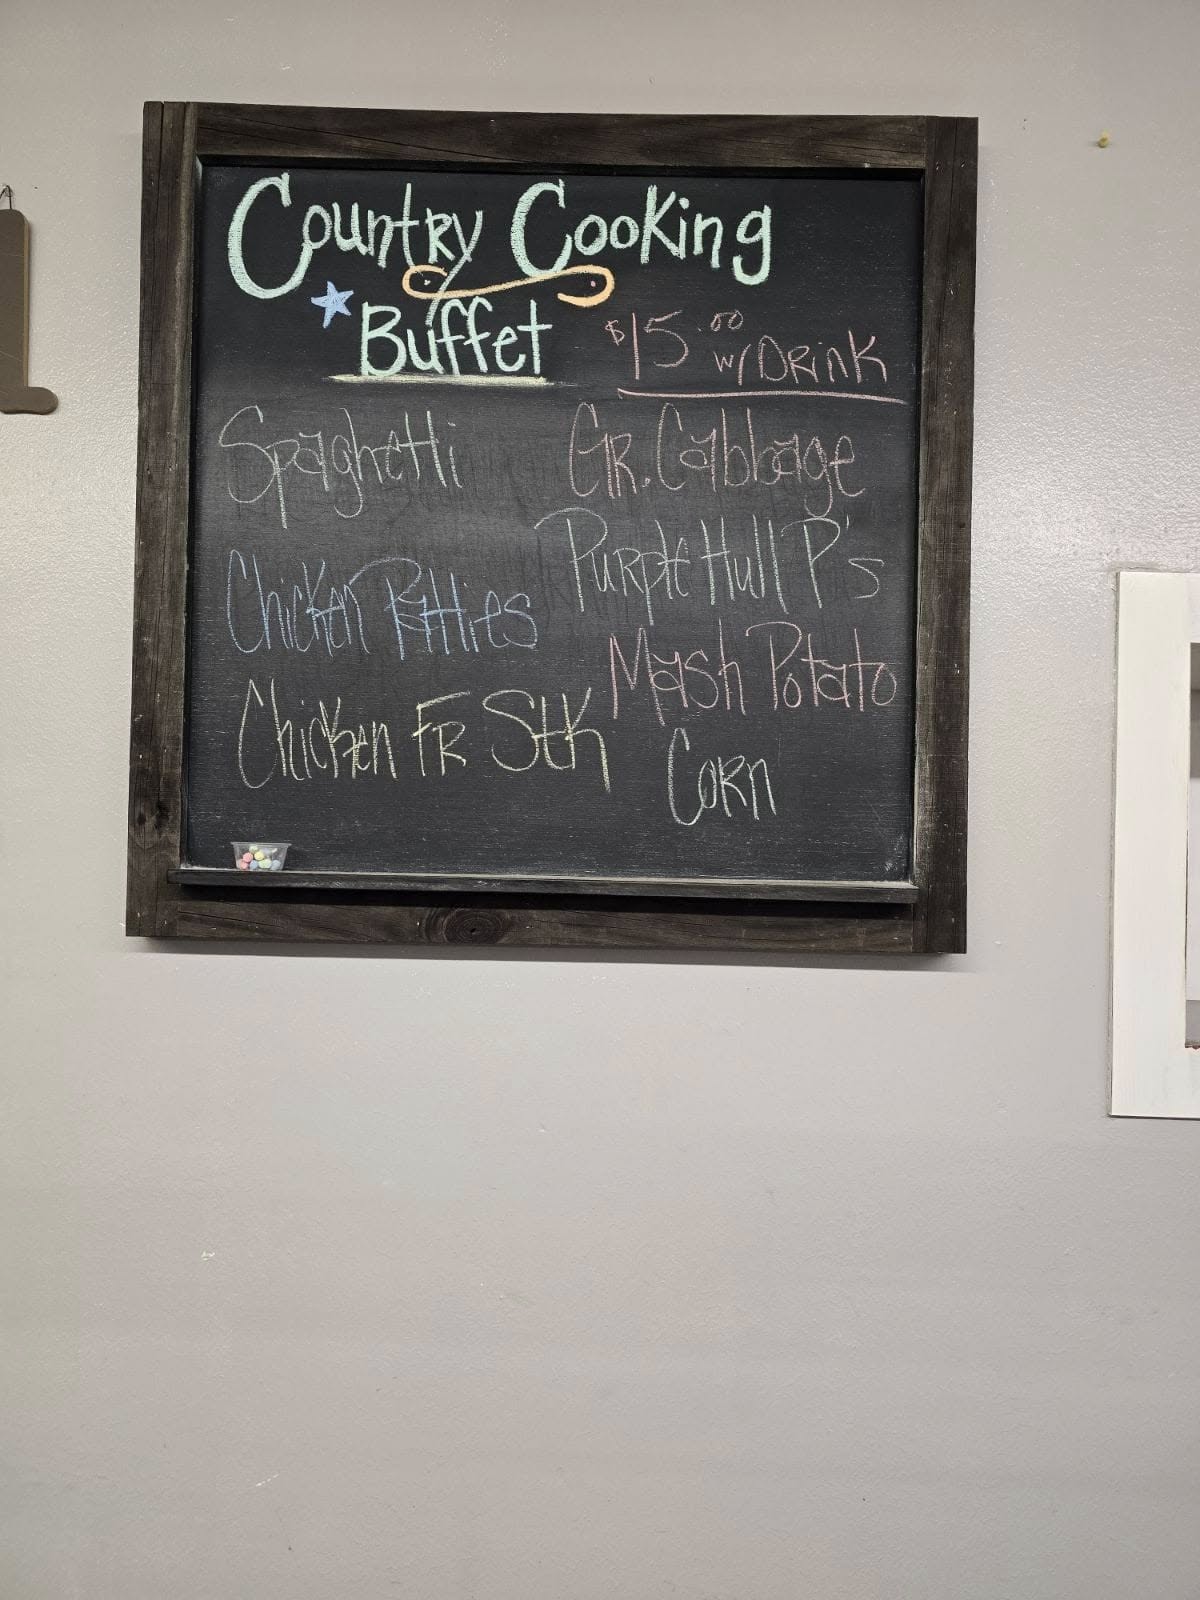 Country Cooking
Buffet
$15.00 w/ Drink
Spaghetti
Chicken Patties
Chicken FR Stk
GR. Cabbage
Purple Hull P's
Mash Potato
Corn